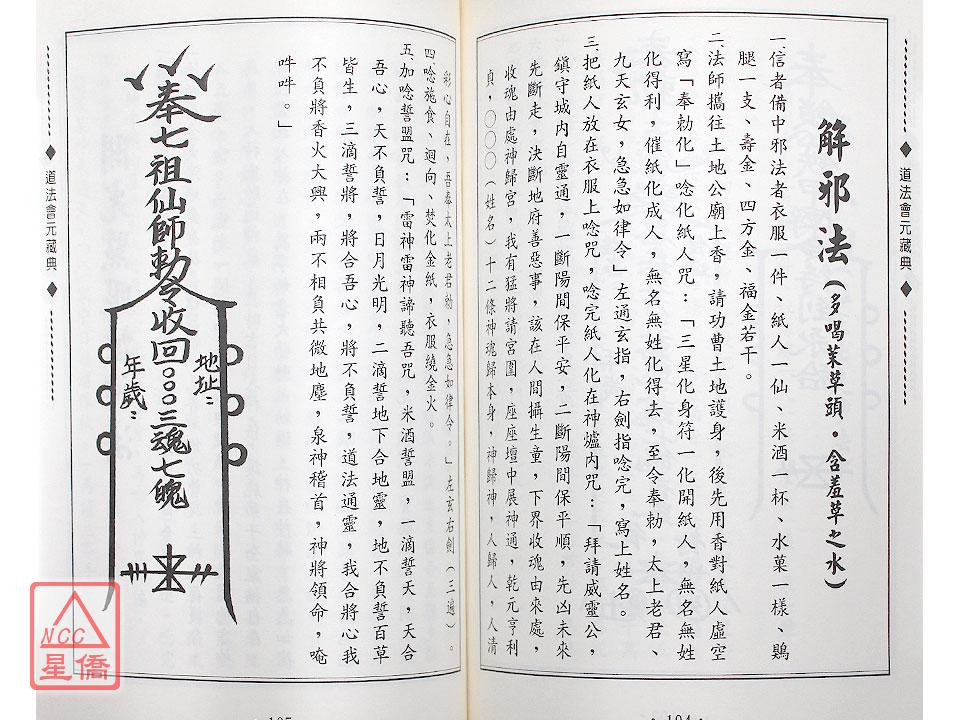 道法會元藏典
解邪法(多喝茉草頭•含羞草之水)
一、信者備中邪法者衣服一件、紙人一仙、米酒一杯、水菓一樣、鷄
腿一支、壽金、四方金、福金若干。
二、法師攜往土地公廟上香,請功曹土地護身,後先用香對紙人虛空
寫「奉勅化」唸化紙人咒:「三星化身符一化開紙人,無名無姓
化得利,催紙化成人,無名無姓化得去,至令奉勅,太上老君、
九天玄女,急急如律令」左通玄指,右劍指唸完,寫上姓名。
三、把紙人放在衣服上唸咒,唸完紙人化在神爐內咒:「拜請威靈公,
鎮守城內自靈通,一斷陽間保平安,二斷陽間保平順,先凶未來
先斷走,決斷地府善惡事,該在人間攝生童,下界收魂由來處,
收魂由處神歸宮,我有猛將請宮圍,座座壇中展神通,乾元亨利
貞,○○○(姓名)十二條神魂歸本身,神歸神,人歸人,人清
•104•
彩心自在,吾奉太上老君勅,急急如律令。」左玄右劍(三遍)。
四、唸施食、迴向、焚化金紙,衣服繞金火。
五、加唸誓盟咒:「雷神雷神諦聽吾咒,米酒誓盟,一滴誓天,天合
吾心,天不負誓,日月光明,二滴誓地下合地靈,地不負誓百草
皆生,三滴誓將,將合吾心,將不負誓,道法通靈,我合將心我
不負將香火大興,兩不相負共微地塵,泉神稽首,神將領命,唵
吽吽。」
奉七祖仙師勅令收回○○○三魂七魄
地址:
年歲:
道法會元藏典
•105•
NCC
星僑